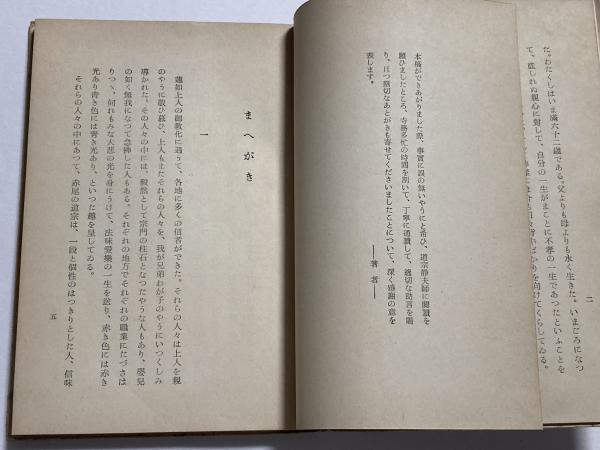 た。わたくしはいま満六十二歳である。父よりも母よりも永く生きた。いまごろになつ
て、慮しれぬ親心に對して、自分の一生がまことに不孝の一生であつたといふことを
ばかりを向けてくらしてゐる。
二
本稿ができあがりました際、事實に誤の無いやうにと希ひ、道宗静夫師に閲讀を
願ひましたところ、寺務多忙の時間を割いて、丁寧に通讀して、適切な助言を賜
り、且つ懇切なあとがきも寄せてくださいましたことについて、深く感謝の意を
表します。
――著者――
まへがき
一
蓮如上人の御教化に遇うて、各地に多くの信者ができた。それらの人々は上人を親
のやうに敬ひ慕ひ、上人もまたそれらの人々を、我が兄弟わが子のやうにいつくしみ
導かれた。その人々の中には、毅然として宗門の柱石となつたやうな人もあり、嬰兒
の如く無我になつて念佛した人もある。それぞれの地方でそれぞれの職業にたづさは
りつゝ、何れもみな大悲の光を身にうけて、法味愛樂の一生を送り、赤き色には赤き
光あり青き色には青き光あり、といつた趣を呈してゐる。
それらの人々の中にあつて、赤尾の道宗は、一段と個性のはつきりとした人、信味
五